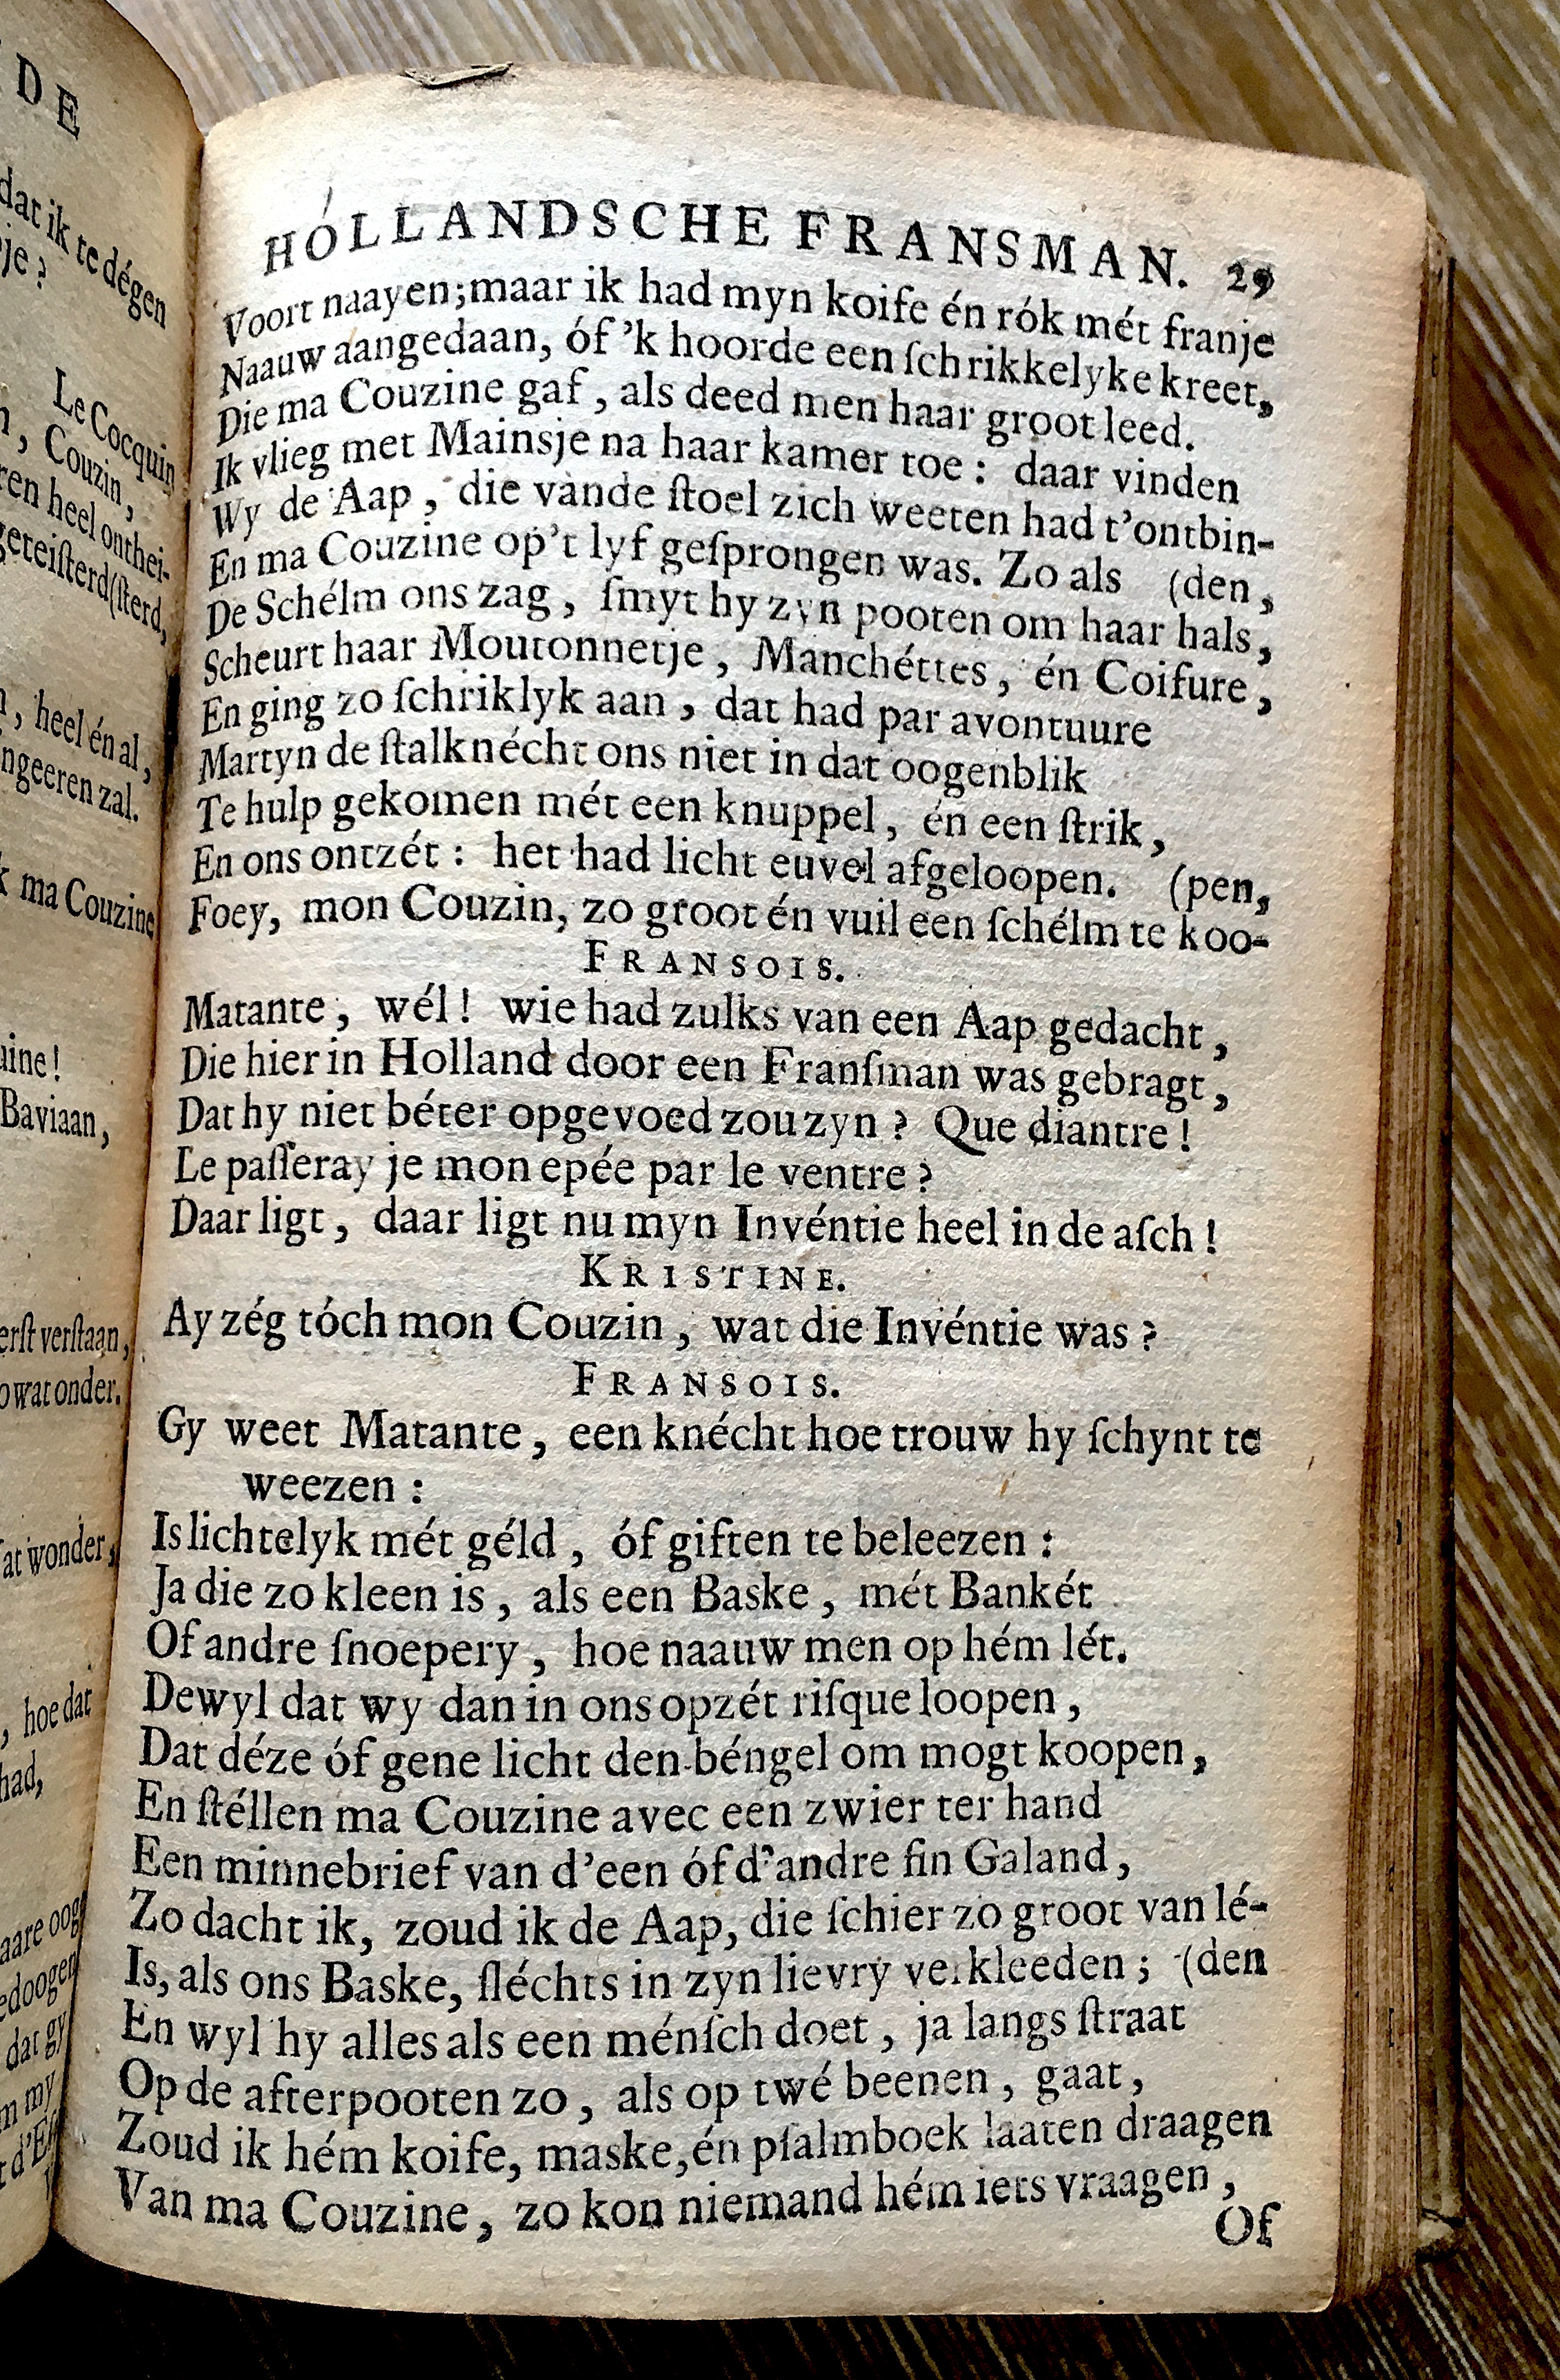 DE
dat ik te dégen
je?
Le Cocquin
, Couzin,
ren heel onthei-
geteiſterd (ſterd,
, heel én al,
ngeeren zal.
k ma Couzine
uine!
Baviaan,
erſt verſtaan,
o wat onder.
at wonder,
, hoe dat
had,
aare oog
edoogen
dat gy
m my
HÓLLANDSCHE FRANSMAN. 29
Voort naayen; maar ik had myn koife én rók mét franje
Naauw aangedaan, óf 'k hoorde een ſchrikkelyke kreet,
Die ma Couzine gaf, als deed men haar groot leed.
Ik vlieg met Mainsje na haar kamer toe: daar vinden
Wy de Aap, die vande ſtoel zich weeten had t'ontbin-
En ma Couzine op't lyf geſprongen was. Zo als (den,
De Schélm ons zag, ſmyt hy zyn pooten om haar hals,
Scheurt haar Moutonnetje, Manchéttes, én Coifure,
En ging zo ſchriklyk aan, dat had par avontuure
Martyn de ſtalknécht ons niet in dat oogenblik
Te hulp gekomen mét een knuppel, én een ſtrik,
En ons ontzét: het had licht euvel afgeloopen. (pen,
Foey, mon Couzin, zo groot én vuil een ſchélm te koo-
FRANSOIS.
Matante, wél! wie had zulks van een Aap gedacht,
Die hier in Holland door een Franſman was gebragt,
Dat hy niet béter opgevoed zou zyn? Que diantre!
Le paſſeray je mon epée par le ventre?
Daar ligt, daar ligt nu myn Invéntie heel in de aſch!
KRISTINE.
Ay zég tóch mon Couzin, wat die Invéntie was?
FRANSOIS.
Gy weet Matante, een knécht hoe trouw hy ſchynt te
weezen:
Is lichtelyk mét géld, óf giften te beleezen:
Ja die zo kleen is, als een Baske, mét Bankét
Of andre ſnoepery, hoe naauw men op hém lét.
Dewyl dat wy dan in ons opzét riſque loopen,
Dat déze óf gene licht den béngel om mogt koopen,
En ſtéllen ma Couzine avec een zwier ter hand
Een minnebrief van d'een óf d'andre fin Galand,
Zo dacht ik, zoud ik de Aap, die ſchier zo groot van lé-
Is, als ons Baske, ſléchts in zyn lievry verkleeden; (den
En wyl hy alles als een ménſch doet, ja langs ſtraat
Op de afterpooten zo, als op twé beenen, gaat,
Zoud ik hém koife, maske, én pſalmboek laaten draagen
Van ma Couzine, zo kon niemand hém iets vraagen,
Of